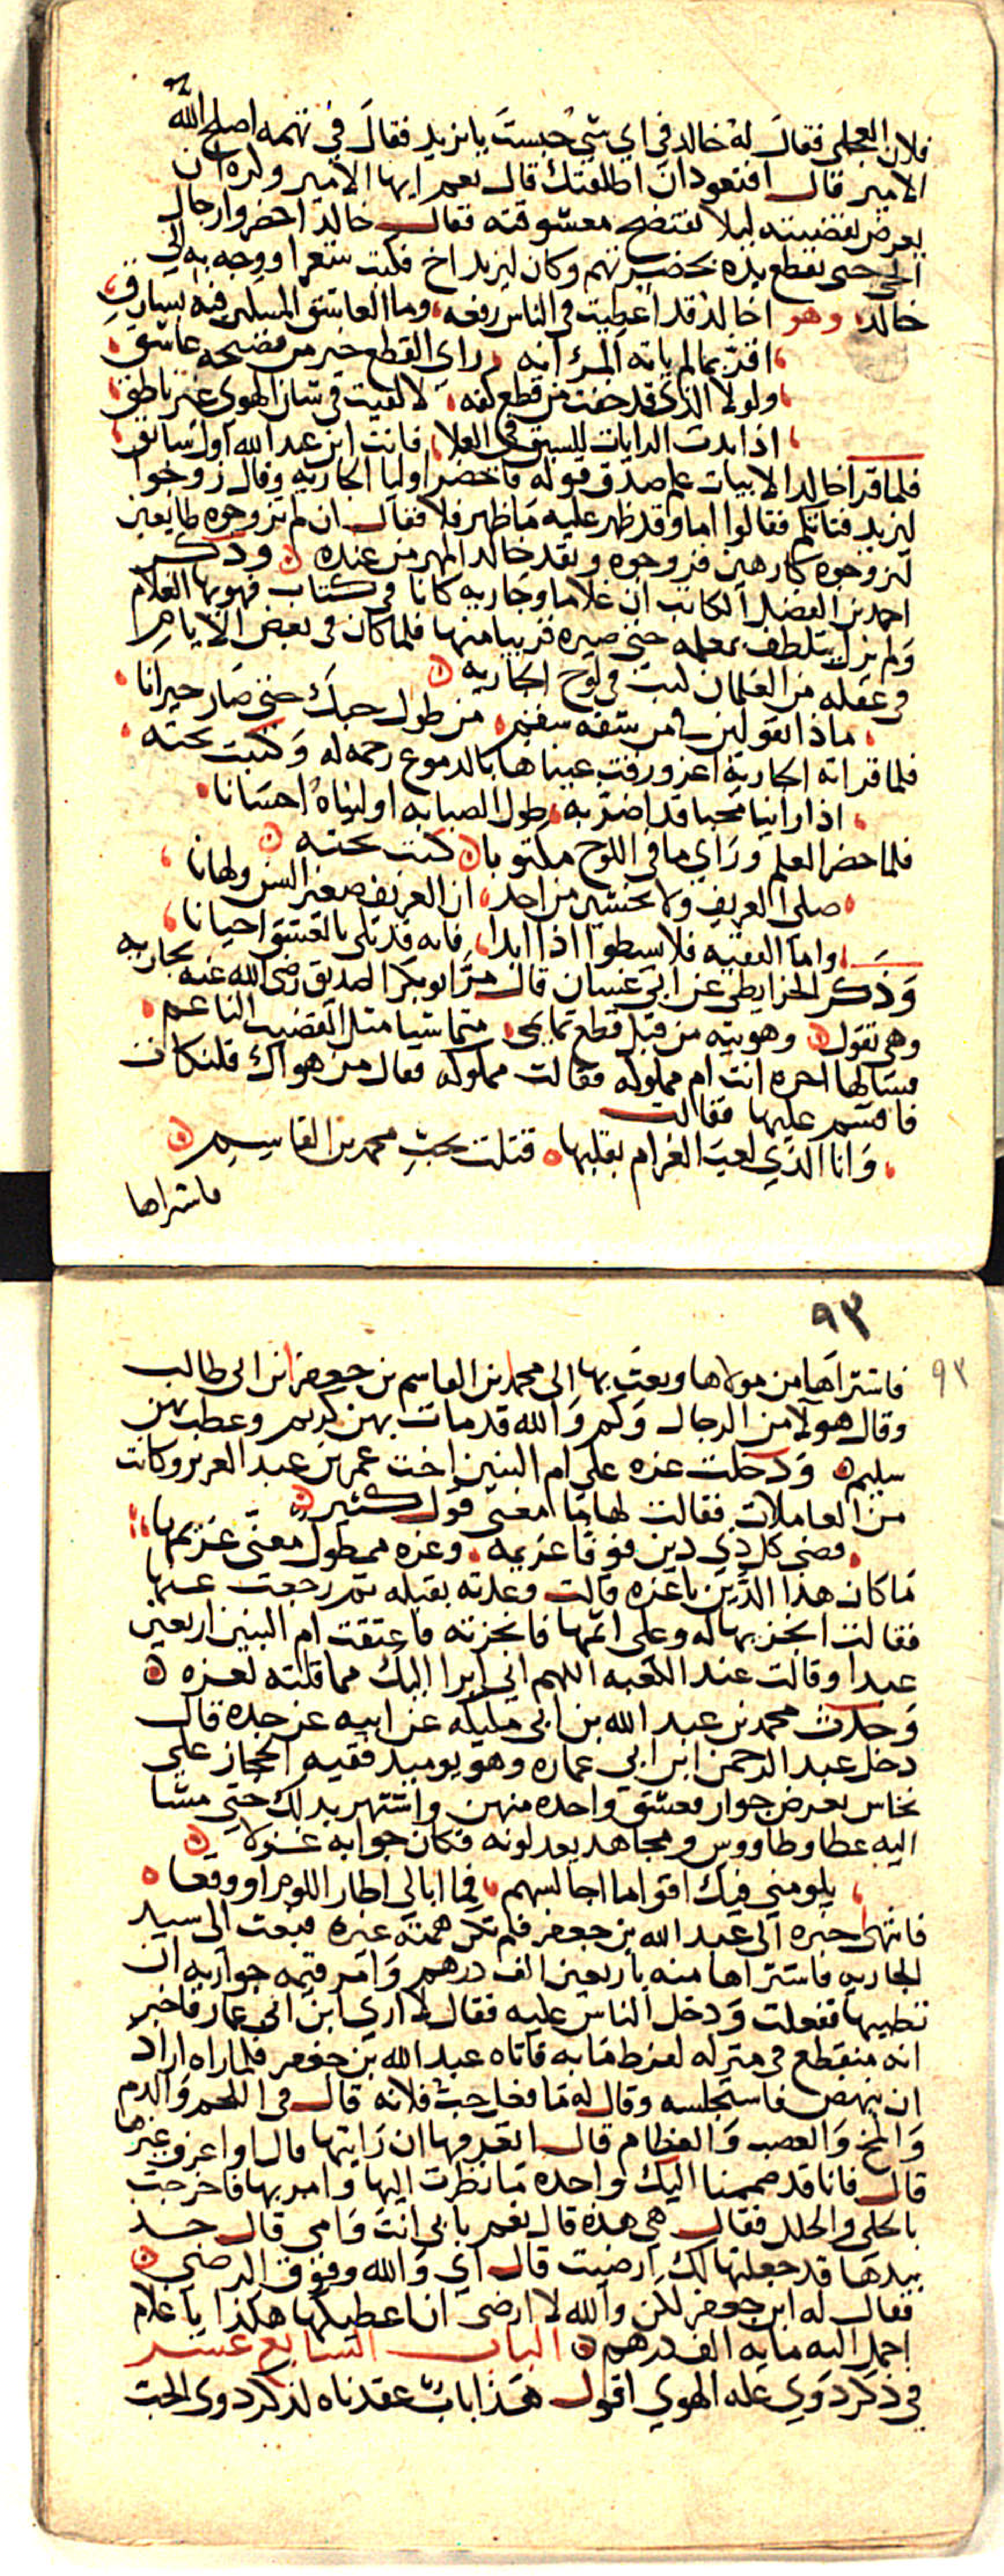 فلان العجلي فقال له خالد في اي شي حبست يا يزيد فقال في تهمه اصلح الله
الامير قال افتعود ان اطلقتك قال نعم ايها الامير وكره ان
يعرض بقضيته ليلا تفتضح معشوقته فقال خالد احضروا رجال
الحي حتى نقطع يده بحضرتهم وكان ليزيد اخ فكتب شعرا ووجه به الى
خالد وهو اخالد قد اعطيت في الناس رفعه وما العاشق المسكين فينا بسارق
اقر بما لم ياته المرء انه راى القطع خير من فضيحه عاشق
ولولا الذي قد خفت من قطع كفه لالفيت في شان الهوى غير ناطق
اذا بدت الرايات للسبق في العلا فانت ابن عبد الله اول سابق
فلما قرا خالد الابيات علم صدق قوله فاحضر اوليا الجاريه وقال زوجوا
ليزيد فتاتكم فقالوا اما وقد ظهر عليه ما ظهر فلا فقال ان لم تزوجوه طايعين
لتزوجوه كارهين فزوجوه ونقد خالد المهر من عنده وذكر
احمد بن الفضل الكاتب ان غلاما وجاريه كانا في كتاب فهويها الغلام
ولم يزل يتلطف بمعلمه حتى صيره قريبا منها فلما كان في بعض الايام
في غفله من الغلمان كتب في لوح الجاريه
ماذا تقولين في من شفه سقم من طول حبك حتى صار حيرانا
فلما قراته الجارية اغرورقت عيناها بالدموع رحمه له وكتبت تحته
اذا راينا محبا قد اضر به طول الصبابه اوليناه احسانا
فلما حضر المعلم وراي ما في اللوح مكتوبا كتب تحته
صلى العريف ولا تخشين من احد ان العريف صغير السن ولهانا
واما الفقيه فلا يسطوا اذا ابدا فانه قد بلي بالعشق احيانا
وذكر الخرايطي عن ابي غسان قال مر ابو بكر الصديق رضي الله عنه بجاريه
وهي تقول وهويته من قبل قطع تمايمي متماشيا مثل القضيب الناعم
فسالها احره انت ام مملوكه فقالت مملوكه فقال من هواك فتلكات
فاقسم عليها فقالت
وانا الذي لعب الغرام بقلبها قتلت بحب محمد بن القاسم
فاشتراها
٩٣
٩٣
فاشتراها من مولاها وبعث بها الى محمد بن القاسم بن جعفر ابن ابي طالب
وقال هولا من الرجال وكم والله قد مات بهن كريم وعطب بهن
سليم ودخلت عزه على ام البنين اخت عمر بن عبد العزيز وكانت
من العاملات فقالت لها ما معنى قول كثير
قضى كل ذي دين فوفا غريمه وعزه ممطول معنى غريمها
ما كان هذا الدين يا عزه قالت وعدته بقبله ثم رجعت عنها
فقالت انجزيها له وعلى اثمها فانجزته فاعتقت ام البنين اربعين
عبدا وقالت عند الكعبه اللهم اني ابرا اليك مما قلته لعزه
وحدث محمد بن عبد الله بن ابي مليكه عن ابيه عن جده قال
دخل عبد الرحمن ابن ابي عماره وهو يوميد فقيه الحجاز على
نخاس يعرض جوار فعشق واحده منهن واشتهر بذلك حتى مشا
اليه عطا وطاووس ومجاهد يعدلونه فكان جوابه غزولا
يلومني فيك اقواما اجالسهم فما ابالي اطار اللوم او وقعا
فانتهى خبره الى عبد الله بن جعفر فلم تكن همته غيره فبعث الى سيد
الجاريه فاشتراها منه باربعين الف درهم وامر قيمه جواريه ان
تطيبها ففعلت ودخل الناس عليه فقال لا اري ابن ابي عمار فاخبر
انه منقطع في منزله لفرط ما به فاتاه عبد الله بن جعفر فلما راه اراد
ان ينهض فاستجلسه وقال له ما فعل حب فلانه قال في اللحم والدم
والمخ والعصب والعظام قال اتعرفها ان رايتها قال او اعرف غيرها
قال فانا قد ضممنا اليك واحده ما نظرت اليها وامر بها فاخرجت
بالحلي والحلل فقال هي هذه قال نعم بابي انت وامي قال خذ
بيدها قد جعلتها لك ارضيت قال اي والله وفوق الرضى
فقال له ابن جعفر لكن والله لا ارضى ان اعطيكها هكذا يا غلام
احمل اليه مايه الف درهم الباب السابع عشر
في ذكر ذوي عله الهوي اقول هذا باب عقدناه لذكر ذوى الحب